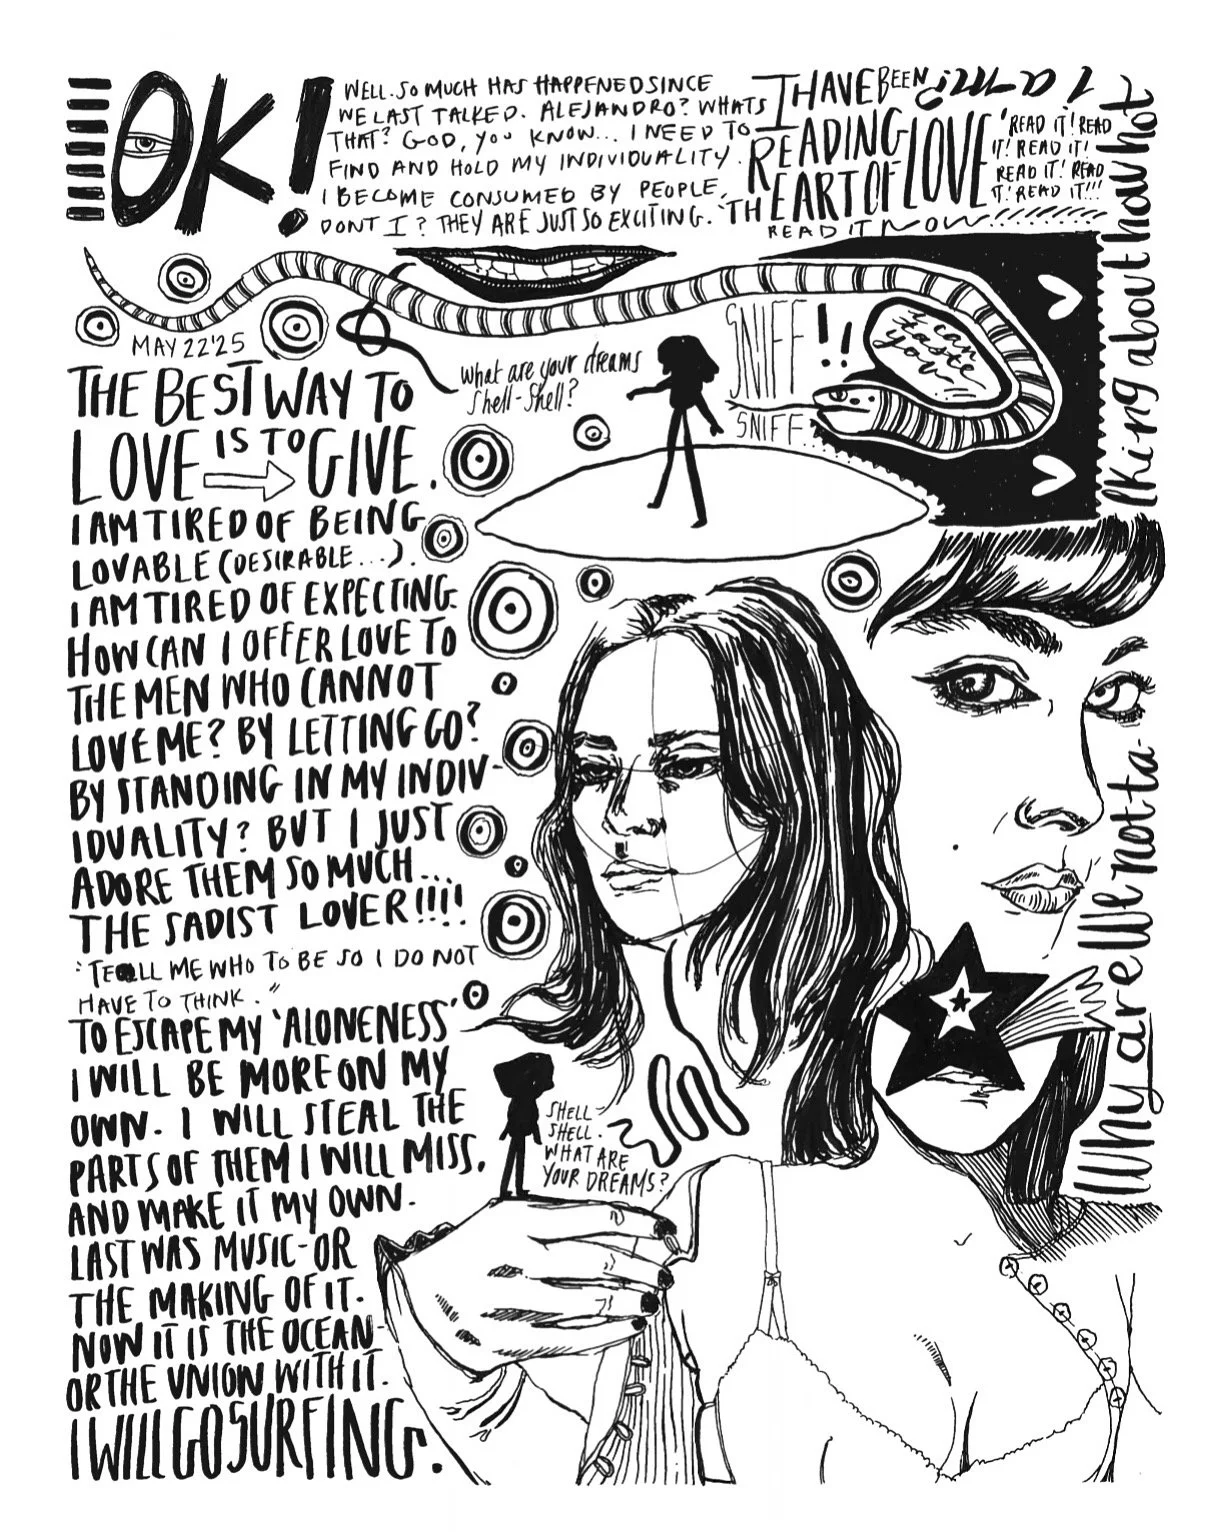 OK!
WELL. SO MUCH HAS HAPPENED SINCE
WE LAST TALKED. ALEJANDRO? WHATS
THAT? GOD, YOU KNOW... I NEED TO
FIND AND HOLD MY INDIVIDUALITY.
I BECOME CONSUMED BY PEOPLE,
DONT I? THEY ARE JUST SO EXCITING.
I HAVE BEEN
READING
'THE ART OF LOVE
'READ IT! READ
IT! READ IT!
READ IT! READ
IT! READ IT!!!
READ IT NOW!!!!!!!!
Why are we not ta-
lking about how hot
I am?!
MAY 22'25
THE BEST WAY TO
LOVE IS TO GIVE.
I AM TIRED OF BEING
LOVABLE (DESIRABLE...).
I AM TIRED OF EXPECTING.
HOW CAN I OFFER LOVE TO
THE MEN WHO CANNOT
LOVE ME? BY LETTING GO?
BY STANDING IN MY INDIV-
IDUALITY? BUT I JUST
ADORE THEM SO MUCH...
THE SADIST LOVER!!!!
"TELL ME WHO TO BE SO I DO NOT
HAVE TO THINK."
TO ESCAPE MY 'ALONENESS'
I WILL BE MORE ON MY
OWN. I WILL STEAL THE
PARTS OF THEM I WILL MISS,
AND MAKE IT MY OWN.
LAST WAS MUSIC - OR
THE MAKING OF IT.
NOW IT IS THE OCEAN -
OR THE UNION WITH IT.
I WILL GO SURFING.
What are your dreams
Shell-Shell?
SNIFF
SNIFF!!
SNIFF...
I can
taste
you!!
SHELL-
SHELL.
WHAT ARE
YOUR DREAMS?